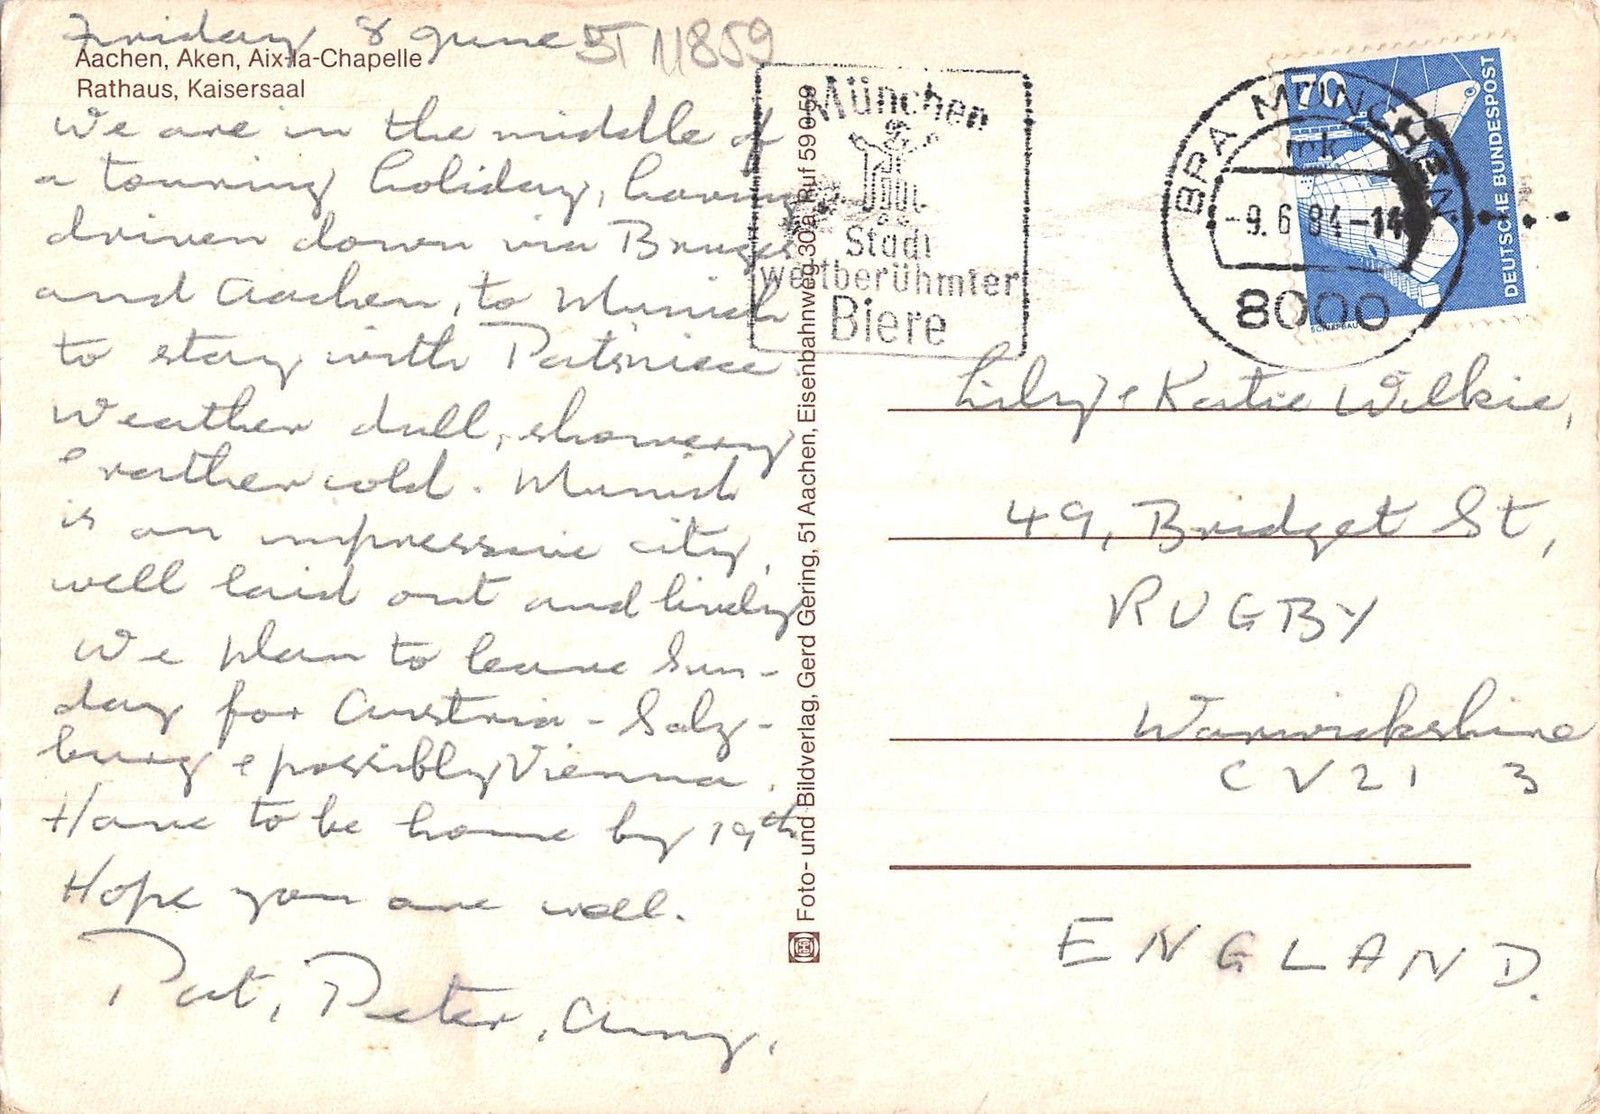 Friday 8 June
ST 11859
Aachen, Aken, Aix-la-Chapelle
Rathaus, Kaisersaal
We are in the middle of
a touring holiday, having
driven down via Bruges
and Aachen, to Munich
to stay with Pat's niece.
Weather dull, showery
& rather cold. Munich
is an impressive city,
well laid out and lively
We plan to leave Sun-
day for Austria - Salz-
burg & possibly Vienna.
Have to be home by 19th
Hope you are well.
Pat, Peter, Amy.
Foto- und Bildverlag, Gerd Gering, 51 Aachen, Eisenbahnweg 30a, Ruf 59059
München
Stadt
weltberühmter
Biere
BPA MÜNCHEN
mk
-9.6 84-14
8000
70
DEUTSCHE BUNDESPOST
SCHIFFBAU
Lily & Katie Wilkie,
49, Bridget St,
RUGBY
Warwickshire
CV21 3
ENGLAND.